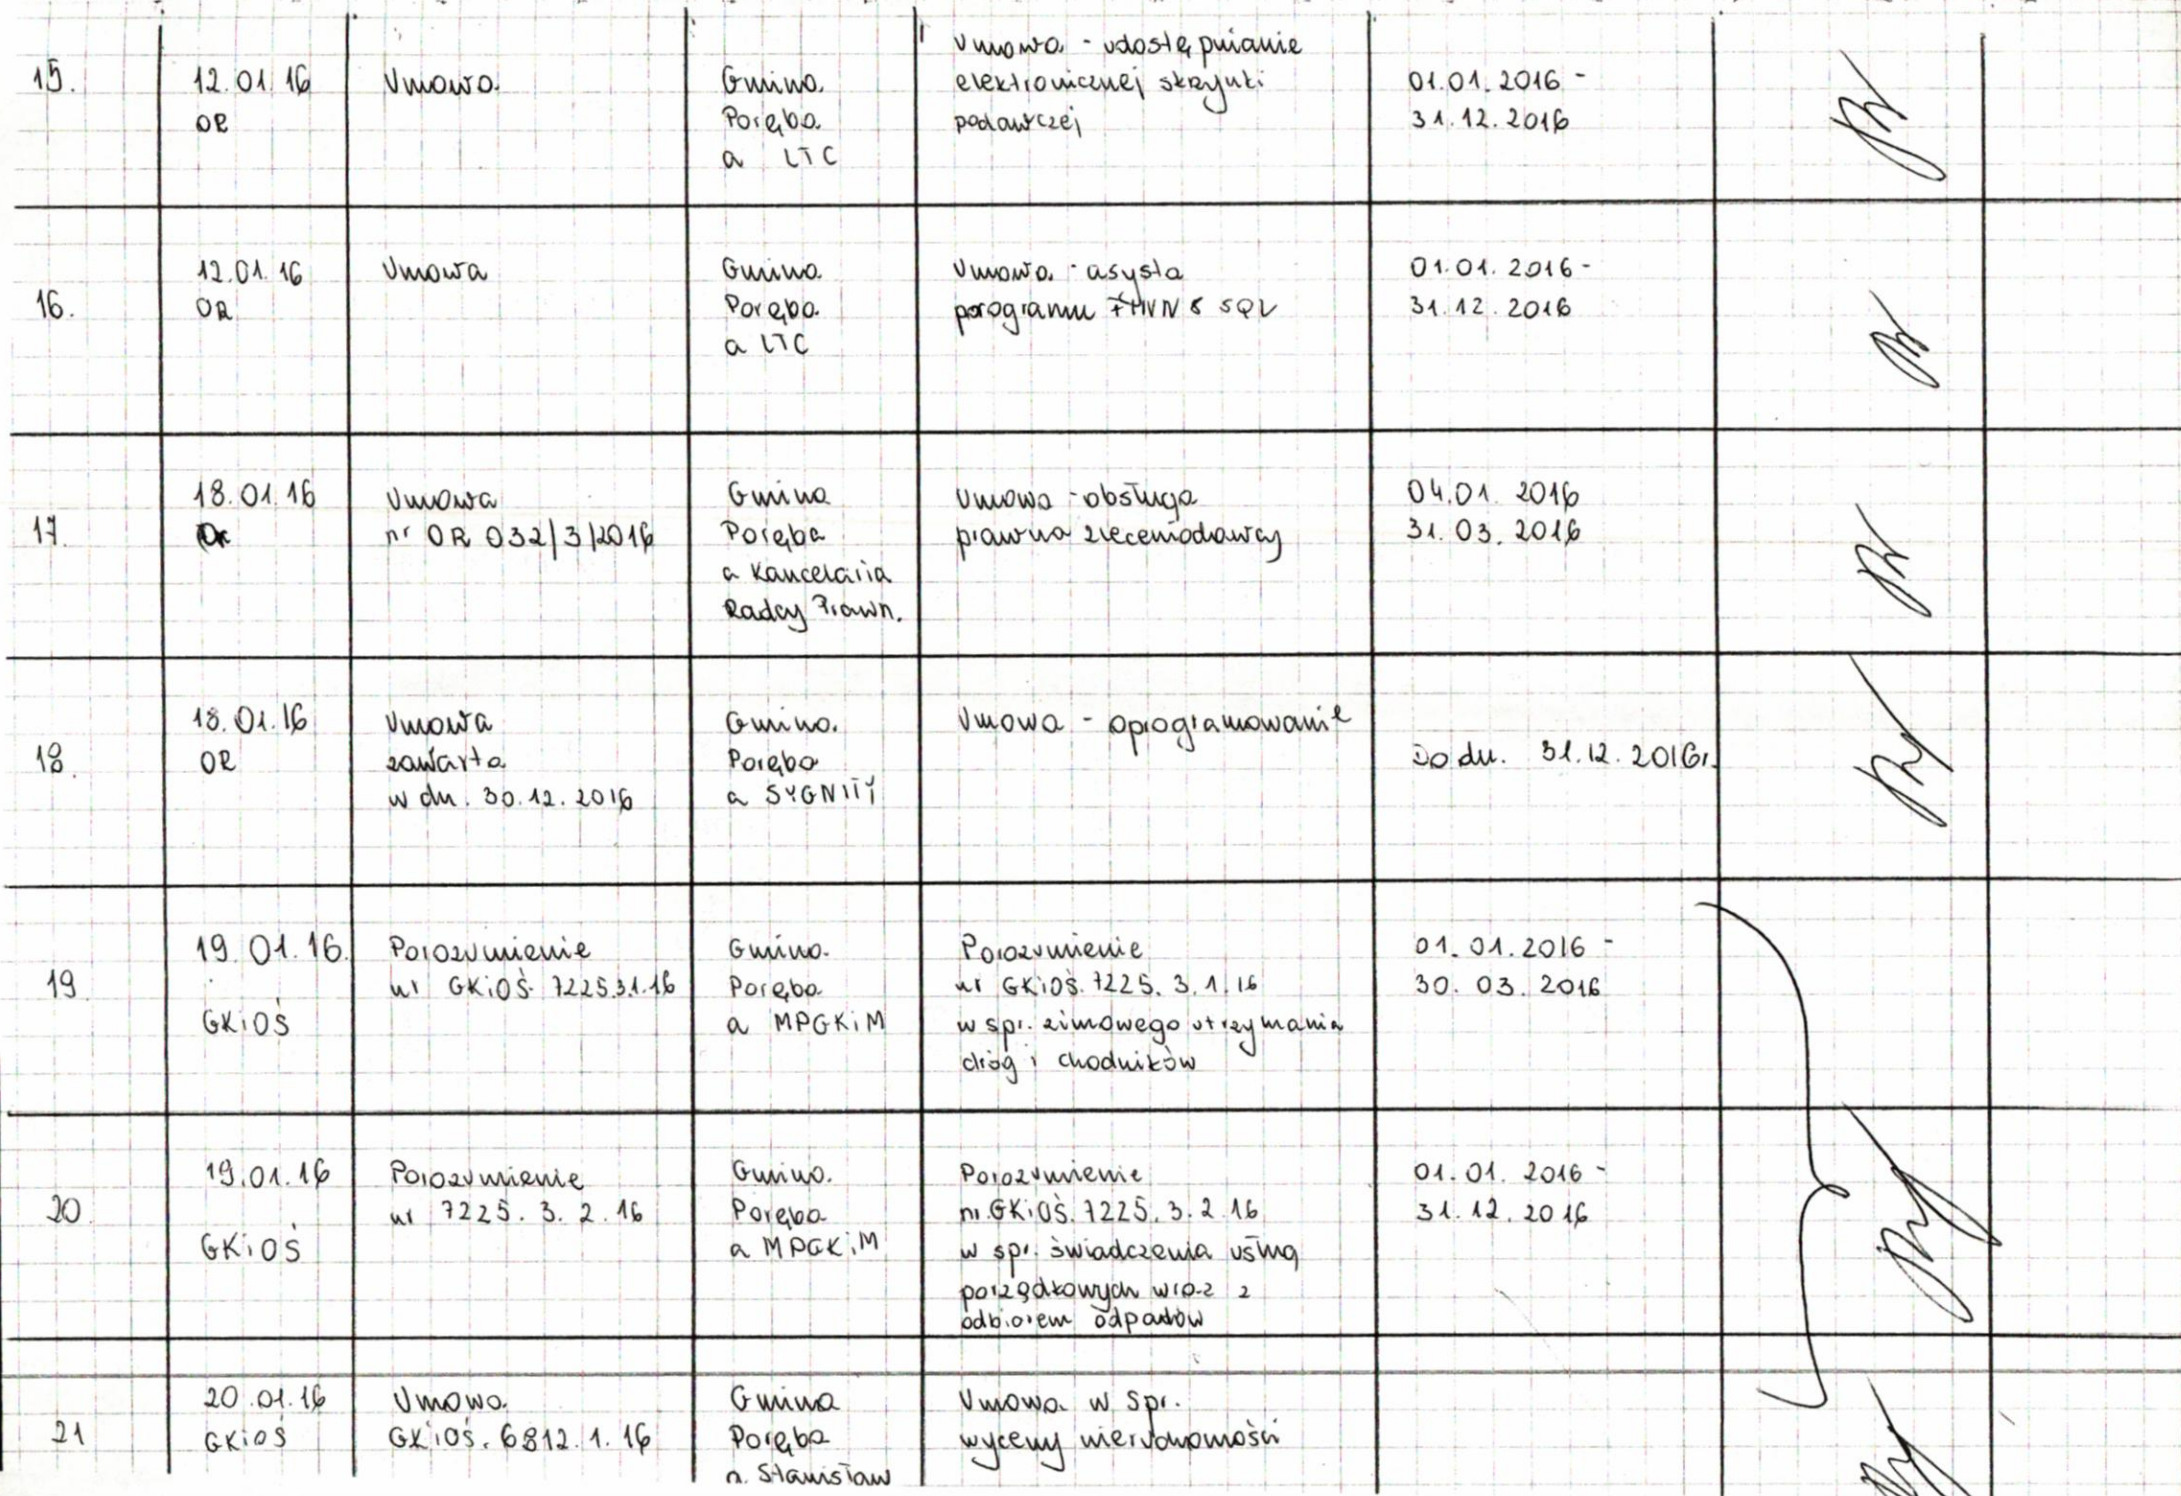 15.
12.01.16
OR
Umowa
Gmina
Poręba
a LTC
Umowa - udostępnianie
elektronicznej skrzynki
podawczej
01.01.2016 -
31.12.2016
16.
12.01.16
OR
Umowa
Gmina
Poręba
a LTC
Umowa - asysta
SQL
01.01.2016 -
31.12.2016
17.
18.01.16
Or
Umowa
nr OR 032/3/2016
Gmina
Poręba
a Kancelaria
Radcy Prawn.
Umowa - obsługa
prawna zleceniodawcy
04.01.2016
31.03.2016
18.
18.01.16
OR
Umowa
zawarta
w dn. 30.12.2016
Gmina
Poręba
a SYGNITY
Umowa - oprogramowanie
Do dn. 31.12.2016r.
19.
19.01.16.
GKiOŚ
Porozumienie
nr GKiOŚ. 7225.3.1.16
Gmina
Poręba
a MPGKiM
Porozumienie
nr GKiOŚ. 7225.3.1.16
w spr. zimowego utrzymania
dróg i chodników
01.01.2016 -
30.03.2016
20.
19.01.16
GKiOŚ
Porozumienie
nr 7225.3.2.16
Gmina
Poręba
a MPGKiM
Porozumienie
nr GKiOŚ. 7225.3.2.16
w spr. świadczenia usług
porządkowych wraz z
odbiorem odpadów
01.01.2016 -
31.12.2016
21
20.01.16
GKiOŚ
Umowa
GKiOŚ. 6812.1.16
Gmina
Poręba
a. Stanisław
Umowa w spr.
wyceny nieruchomości